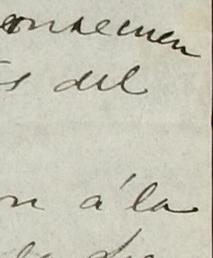 consecuen
s del
n á la